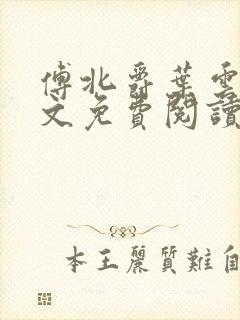 傅北爵葉雲
文免費閱讀
本王麗質難自